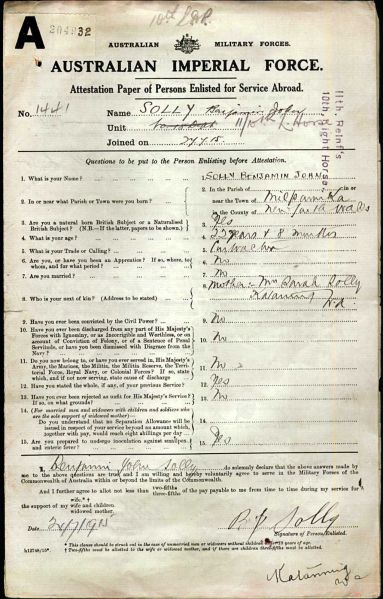 10th L.H.R.
A
204932
AUSTRALIAN MILITARY FORCES.
AUSTRALIAN IMPERIAL FORCE.
Attestation Paper of Persons Enlisted for Service Abroad.
No. 1441 Name SOLLY Benjamin John
Unit 11/10th L Horse
Joined on 27 7 15
11th Reinf's
10th Light Horse
Questions to be put to the Person Enlisting before Attestation.
1. What is your Name? 1. SOLLY BENJAMIN JOHN
2. In or near what Parish or Town were you born? 2. In the Parish of in or
near the Town of Milparinka
in the County of New South Wales
3. Are you a natural born British Subject or a Naturalised British Subject? (N.B.—If the latter, papers to be shown) 3. Yes
4. What is your age? 4. 22 Years & 8 months
5. What is your Trade or Calling? 5.
6. Are you, or have you been an Apprentice? If so, where, to whom, and for what period? 6. No
7. Are you married? 7. No
8. Who is your next of kin? (Address to be stated) 8. Mother - Mrs Sarah Solly
Katanning
WA
9. Have you ever been convicted by the Civil Power? 9. No
10. Have you ever been discharged from any part of His Majesty's Forces with Ignominy, or as Incorrigible and Worthless, or on account of Conviction of Felony, or of a Sentence of Penal Servitude, or have you been dismissed with Disgrace from the Navy? 10. No
11. Do you now belong to, or have you ever served in, His Majesty's Army, the Marines, the Militia, the Militia Reserve, the Territorial Force, Royal Navy, or Colonial Forces? If so, state which, and if not now serving, state cause of discharge 11. No
12. Have you stated the whole, if any, of your previous Service? 12. Yes
13. Have you ever been rejected as unfit for His Majesty's Service? If so, on what grounds? 13. No
14. (For married men and widowers with children and soldiers who are the sole support of widowed mother)—
Do you understand that no Separation Allowance will be issued in respect of your service beyond an amount which, together with pay, would reach eight shillings per day 14.
15. Are you prepared to undergo inoculation against smallpox and enteric fever? 15. Yes
I, Benjamin John Solly do solemnly declare that the above answers made by me to the above questions are true and I am willing and hereby voluntarily agree to serve in the Military Forces of the Commonwealth of Australia within or beyond the limits of the Commonwealth.
And I further agree to allot not less than two-fifths three-fifths of the pay payable to me from time to time during my service for
the support of my wife* † wife and children widowed mother.
Date 26/7/1915 B. J. Solly
Signature of Person Enlisted.
* This clause should be struck out in the case of unmarried men or widowers without children under 18 years of age.
† Two-fifths must be allotted to the wife or widowed mother, and if there are children three-fifths must be allotted.
Katanning
WA